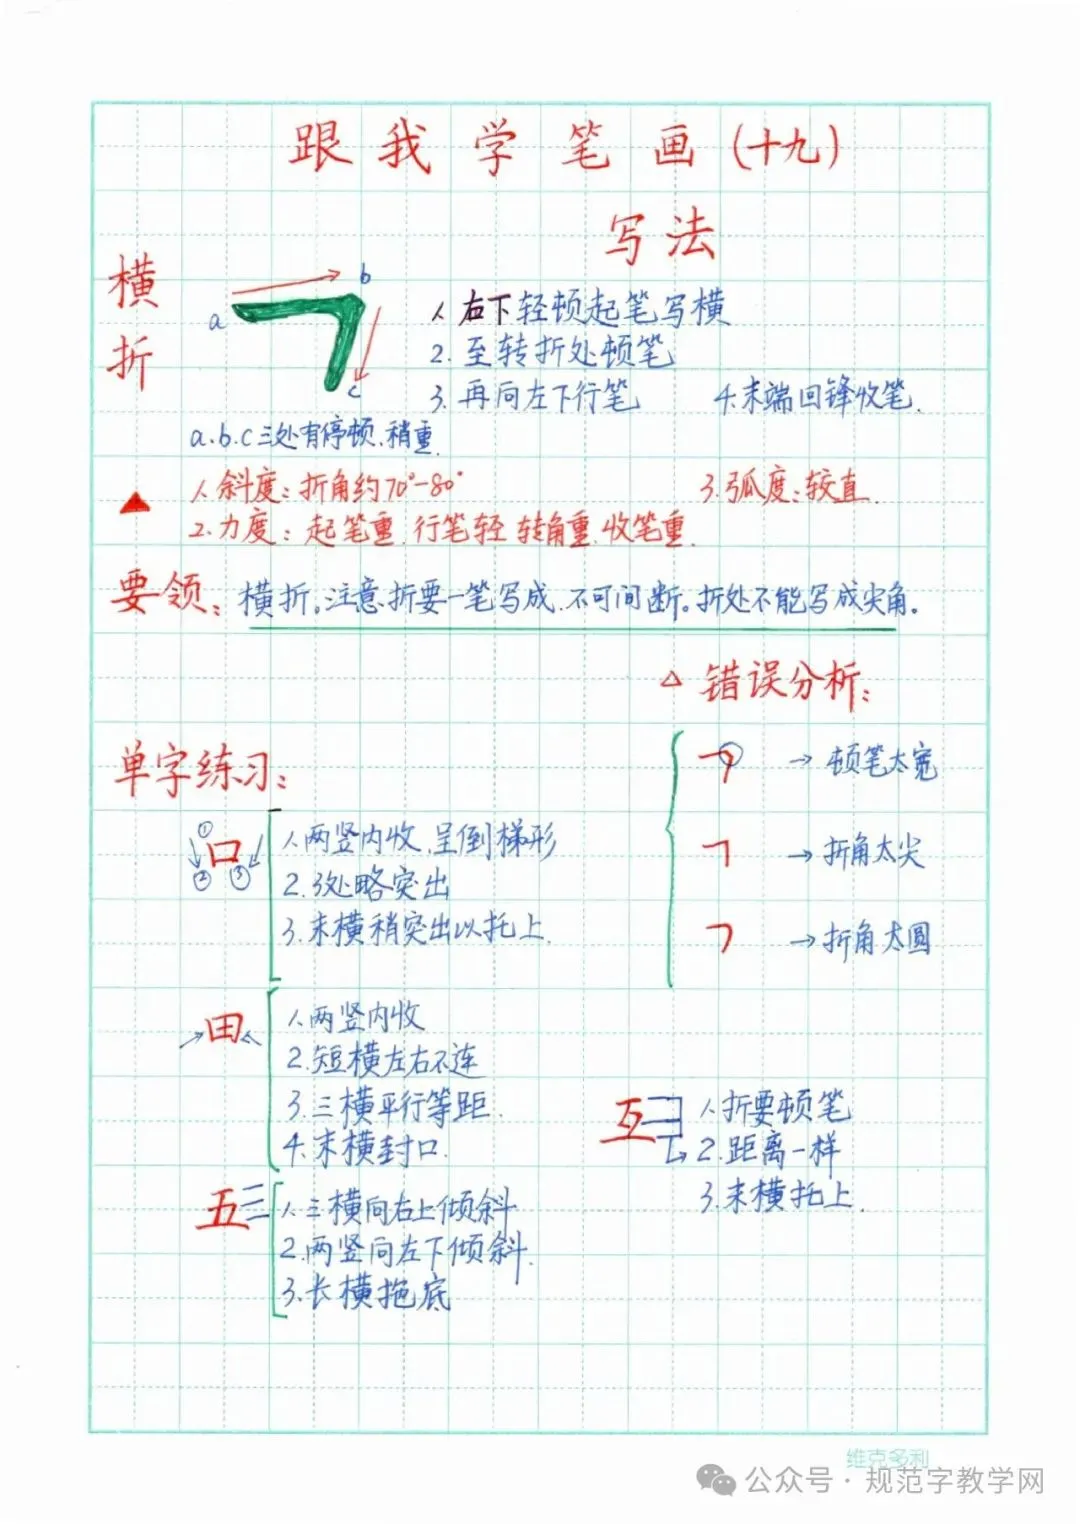 跟我学笔画(十九)
写法
横折
a
b
c
1.右下轻顿起笔写横
2.至转折处顿笔
3.再向左下行笔 4.末端回锋收笔.
a.b.c三处有停顿、稍重.
▲
1.斜度:折角约70°-80° 3.弧度:较直.
2.力度:起笔重.行笔轻 转角重.收笔重.
要领:横折。注意折要一笔写成、不可间断。折处不能写成尖角。
△错误分析:
→顿笔太宽
→折角太尖
→折角太圆
单字练习:
口
①
②
③
1.两竖内收.呈倒梯形
2.3处略突出
3.末横稍突出以托上.
田
1.两竖内收
2.短横左右不连
3.三横平行等距.
4.末横封口.
互
1.折要顿笔
2.距离一样
3.末横托上.
五
1.三横向右上倾斜
2.两竖向左下倾斜.
3.长横拖底
维克多利
公众号·规范字教学网